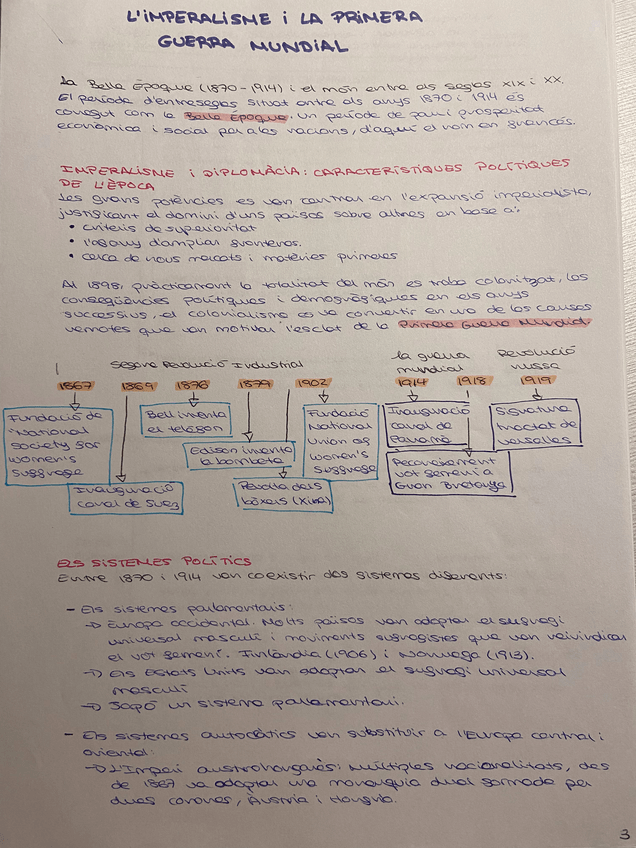 L'IMPERALISME i LA PRIMERA
GUERRA MUNDIAL
La Belle Époque (1870-1914) i el món entre els segles XIX i XX.
El període d'entresegles situat entre els anys 1870 i 1914 és
conegut com la Belle Époque. Un període de pau i prosperitat
econòmica i social per a les nacions, d'aquí el nom en francès.
IMPERALISME i DIPLOMÀCIA: CARACTERÍSTIQUES POLÍTIQUES
DE L'ÈPOCA
Les grans potències es van centrar en l'expansió imperialista,
justificant el domini d'uns països sobre altres en base a:
• criteris de superioritat
• l'afany d'ampliar fronteres.
• cerca de nous mercats i matèries primeres
Al 1898, pràcticament la totalitat del món es troba colonitzat, les
conseqüències polítiques i demogràfiques en els anys
successius, el colonialisme es va convertir en una de les causes
remotes que van motivar l'esclat de la Primera Guerra Mundial.
Segona Revolució Industrial
la guerra
mundial
Revolució
russa
1867 1869 1876 1879 1902 1914 1918 1919
Fundació de
National
society for
women's
suffrage
Inauguració
canal de Suez
Bell inventa
el telèfon
Edison inventa
la bombeta
Revolta dels
bòxers (Xina)
Fundació
National
Union of
women's
suffrage
Inauguració
canal de
Panamà
Reconeixement
vot femení a
Gran Bretanya
Signatura
tractat de
Versalles
ELS SISTEMES POLÍTICS
Entre 1870 i 1914 van coexistir dos sistemes diferents:
- Els sistemes parlamentaris:
→ Europa occidental. Molts països van adoptar el sufragi
universal masculí i moviments sufragistes que van reivindicar
el vot femení. Finlàndia (1906) i Noruega (1913).
→ Els Estats Units van adoptar el sufragi universal
masculí
→ Japó un sistema parlamentari.
- Els sistemes autocàtics van substituir a l'Europa central i
oriental:
→ L'Imperi austrohongarès: Múltiples nacionalitats, des
de 1867 va adoptar una monarquia dual formada per
dues corones, Àustria i Hongria.
3